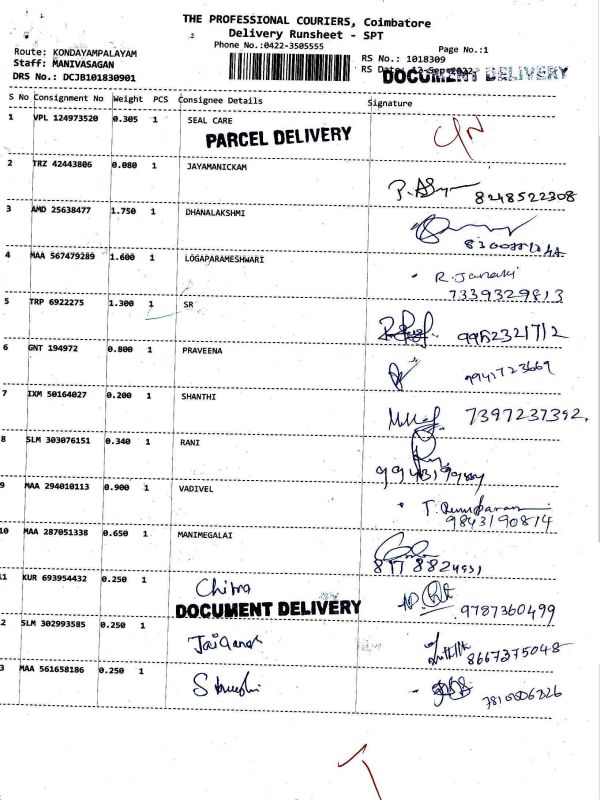 THE PROFESSIONAL COURIERS, Coimbatore
Delivery Runsheet - SPT
Phone No.:0422-3505555
Page No.:1
Route: KONDAYAMPALAYAM
Staff: MANIVASAGAN
DRS No.: DCJB101830901
RS No.: 1018309
RS Date: 12-Sep-2022
DOCUMENT DELIVERY
S No Consignment No Weight PCS Consignee Details Signature
1 VPL 124973520 0.305 1 SEAL CARE
PARCEL DELIVERY
2 TRZ 42443806 0.080 1 JAYAMANICKAM
8248522308
3 AMD 25638477 1.750 1 DHANALAKSHMI
4 MAA 567479289 1.600 1 LOGAPARAMESHWARI
R. Janaki
7339329813
5 TRP 6922275 1.300 1 SR
9952321712
6 GNT 194972 0.800 1 PRAVEENA
9941723669
7 IXM 50164027 0.200 1 SHANTHI
7397237392.
8 SLM 303076151 0.340 1 RANI
9 MAA 294010113 0.900 1 VADIVEL
9843190814
10 MAA 287051338 0.650 1 MANIMEGALAI
11 KUR 693954432 0.250 1 Chitra
9787360499
DOCUMENT DELIVERY
2 SLM 302993585 0.250 1
8667375048
3 MAA 561658186 0.250 1